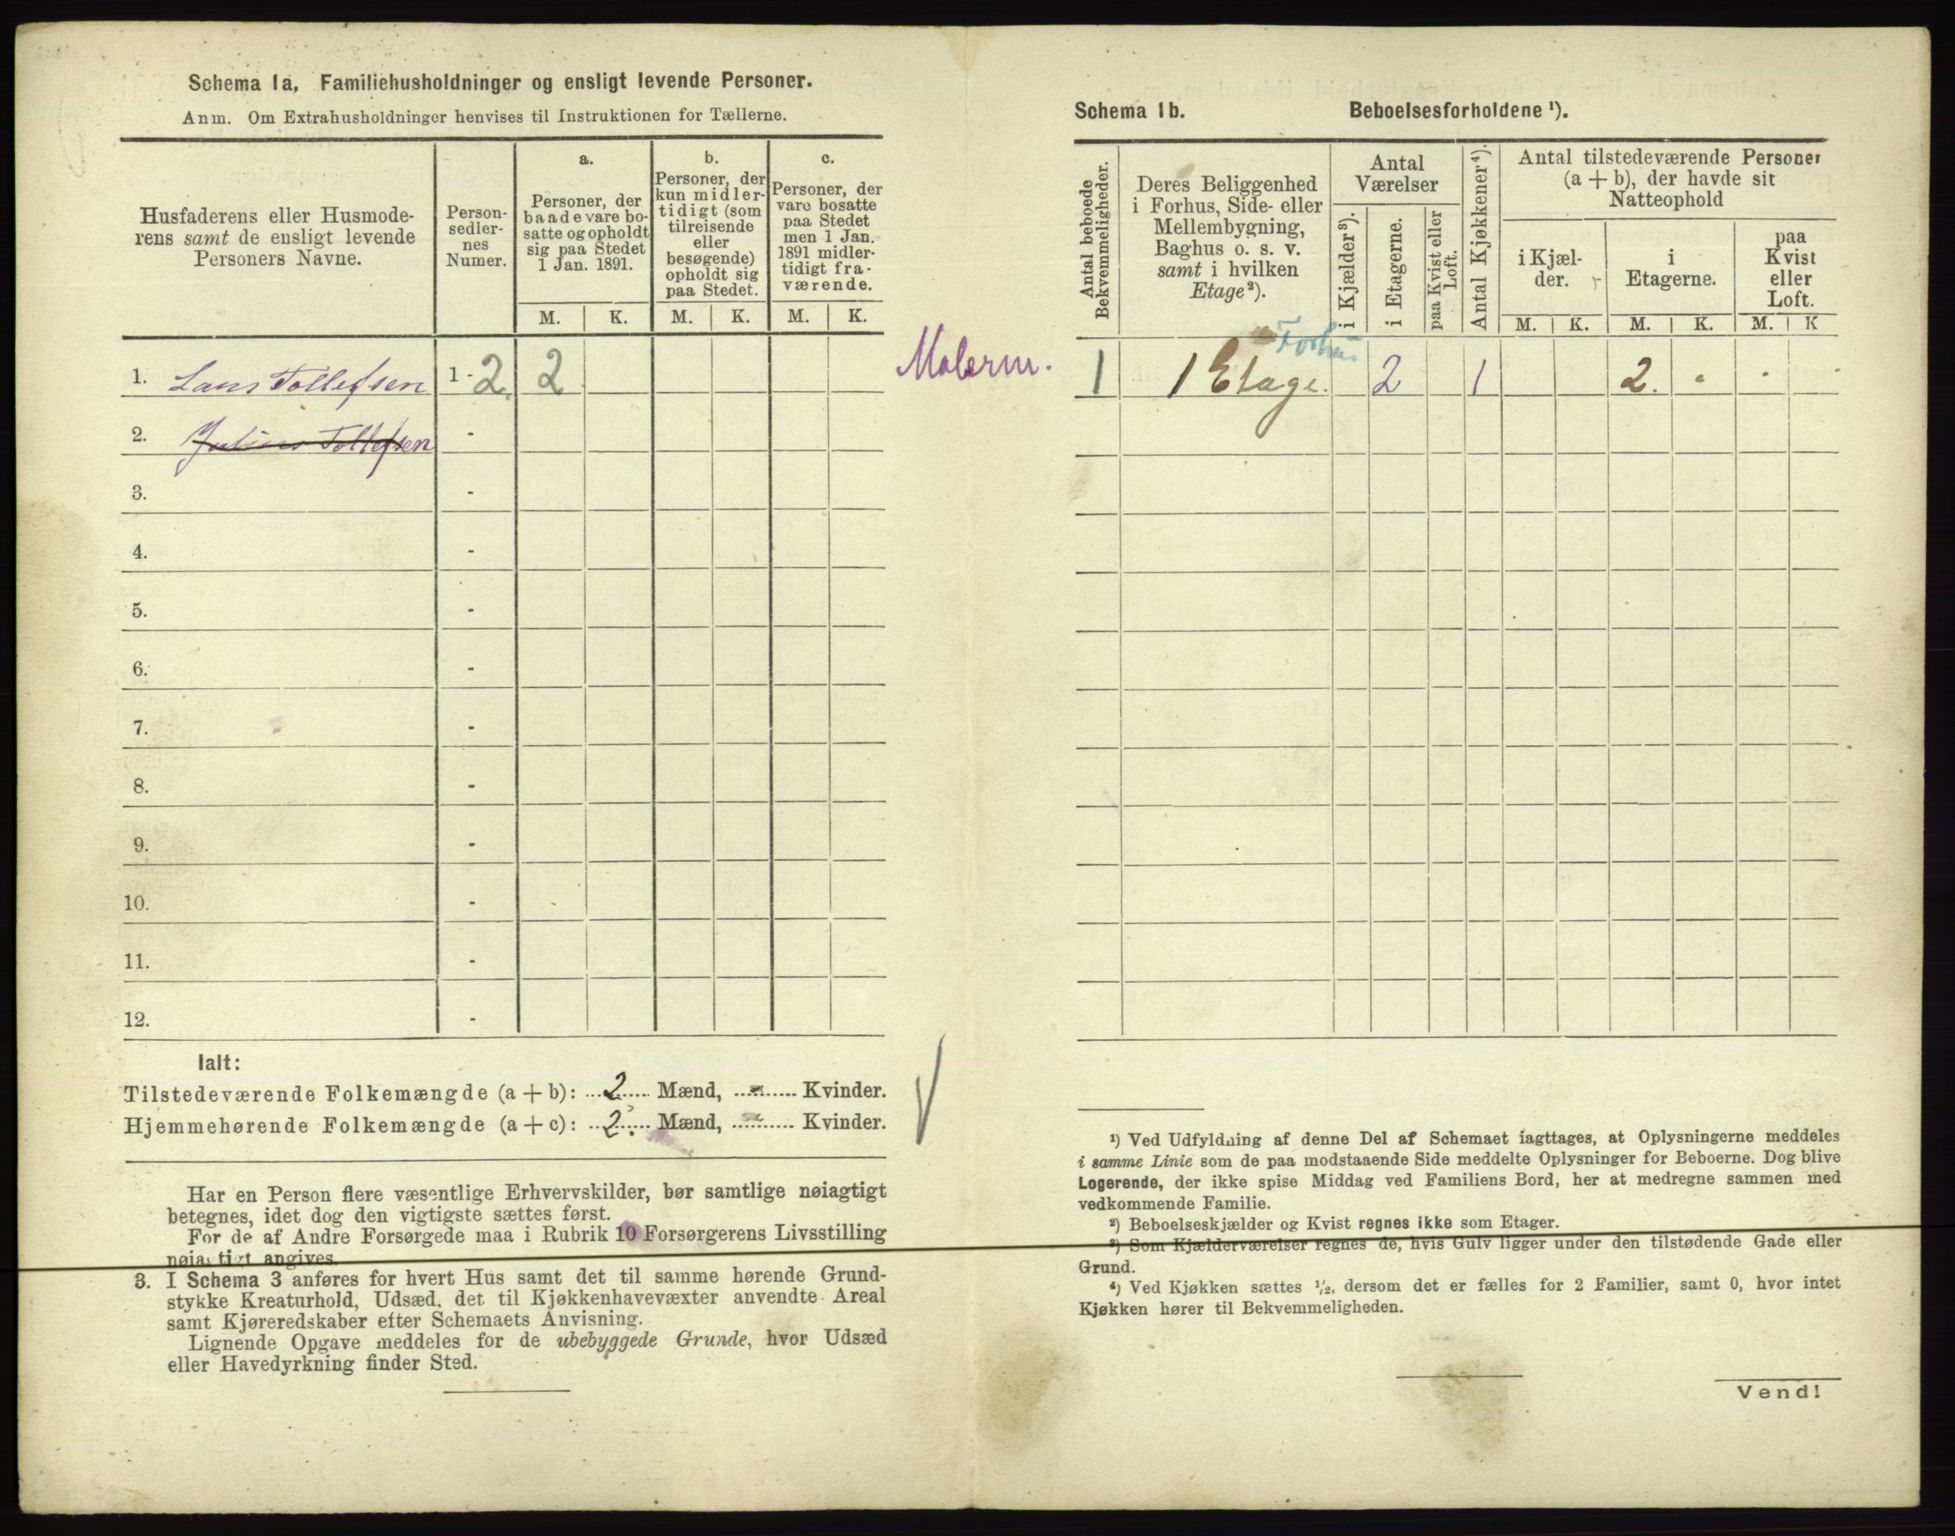 Schema 1a. Familiehusholdninger og ensligt levende Personer.
Anm. Om Extrahusholdninger henvises til Instruktionen for Tællerne.
Husfaderens eller Husmode-
rens samt de ensligt levende
Personers Navne.
Person-
sedler-
nes
Numer.
a.
Personer, der
baade vare bo-
satte og opholdt
sig paa Stedet
1 Jan. 1891.
b.
Personer, der
kun midler-
tidigt (som
tilreisende
eller
besøgende)
opholdt sig
paa Stedet.
c.
Personer, der
vare bosatte
paa Stedet
men 1 Jan.
1891 midler-
tidigt fra-
værende.
M. K. M. K. M. K.
1. Lars Tollefsen 1 - 2. 2
2. Julius Tollefsen -
3. -
4. -
5. -
6. -
7. -
8. -
9. -
10. -
11. -
12. -
Ialt:
Tilstedeværende Folkemængde (a + b): 2 Mænd, - Kvinder.
Hjemmehørende Folkemængde (a + c): 2. Mænd, - Kvinder.
Har en Person flere væsentlige Erhvervskilder, bør samtlige nøiagtigt
betegnes, idet dog den vigtigste sættes først.
For de af Andre Forsørgede maa i Rubrik 10 Forsørgerens Livsstilling
nøiagtigt angives.
3. I Schema 3 anføres for hvert Hus samt det til samme hørende Grund-
stykke Kreaturhold, Udsæd, det til Kjøkkenhavevæxter anvendte Areal
samt Kjøreredskaber efter Schemaets Anvisning.
Lignende Opgave meddeles for de ubebyggede Grunde, hvor Udsæd
eller Havedyrkning finder Sted.
Schema 1b. Beboelsesforholdene ¹).
Antal beboede
Bekvemmeligheder.
Deres Beliggenhed
i Forhus, Side- eller
Mellembygning,
Baghus o. s. v.
samt i hvilken
Etage²).
Antal
Værelser
i Kjælder³).
i Etagerne.
paa Kvist eller
Loft.
Antal Kjøkkener⁴).
Antal tilstedeværende Personer
(a + b), der havde sit
Natteophold
i Kjæl-
der.
i
Etagerne.
paa
Kvist
eller
Loft.
M. K. M. K. M. K
Forhus
1 1 Etage. 2 1 2. - - -
¹) Ved Udfyldning af denne Del af Schemaet iagttages, at Oplysningerne meddeles
i samme Linie som de paa modstaaende Side meddelte Oplysninger for Beboerne. Dog blive
Logerende, der ikke spise Middag ved Familiens Bord, her at medregne sammen med
vedkommende Familie.
²) Beboelseskjælder og Kvist regnes ikke som Etager.
³) Som Kjælderværelser regnes de, hvis Gulv ligger under den tilstødende Gade eller
Grund.
⁴) Ved Kjøkken sættes ½, dersom det er fælles for 2 Familier, samt 0, hvor intet
Kjøkken hører til Bekvemmeligheden.
Vend!